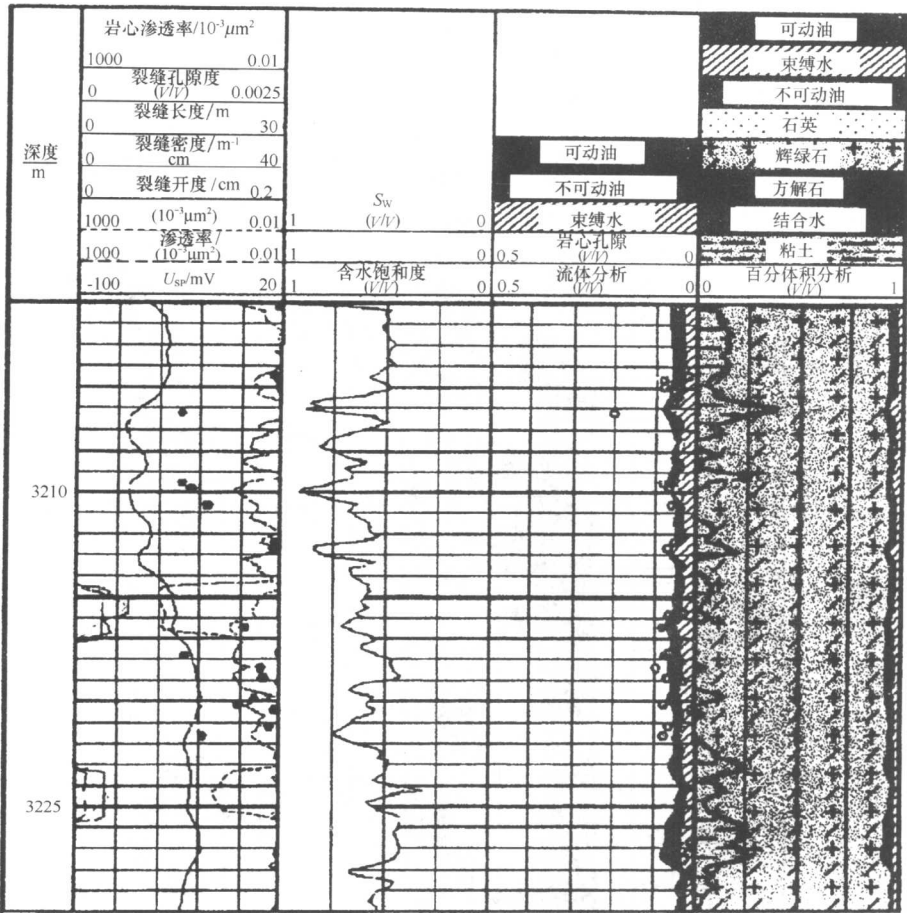 深度
m
岩心渗透率/10⁻³μm²
1000 0.01
裂缝孔隙度
0 (V/V) 0.0025
裂缝长度/m
0 30
裂缝密度/m⁻¹
0 cm 40
裂缝开度/cm
0 0.2
1000 (10⁻³μm²) 0.01
渗透率/
1000 (10⁻³μm²) 0.01
U_SP/mV
-100 20
S_W
1 (V/V) 0
含水饱和度
1 (V/V) 0
可动油
不可动油
束缚水
岩心孔隙
0.5 (V/V) 0
流体分析
0.5 (V/V) 0
可动油
束缚水
不可动油
石英
辉绿石
方解石
结合水
粘土
百分体积分析
0 (V/V) 1
3210
3225